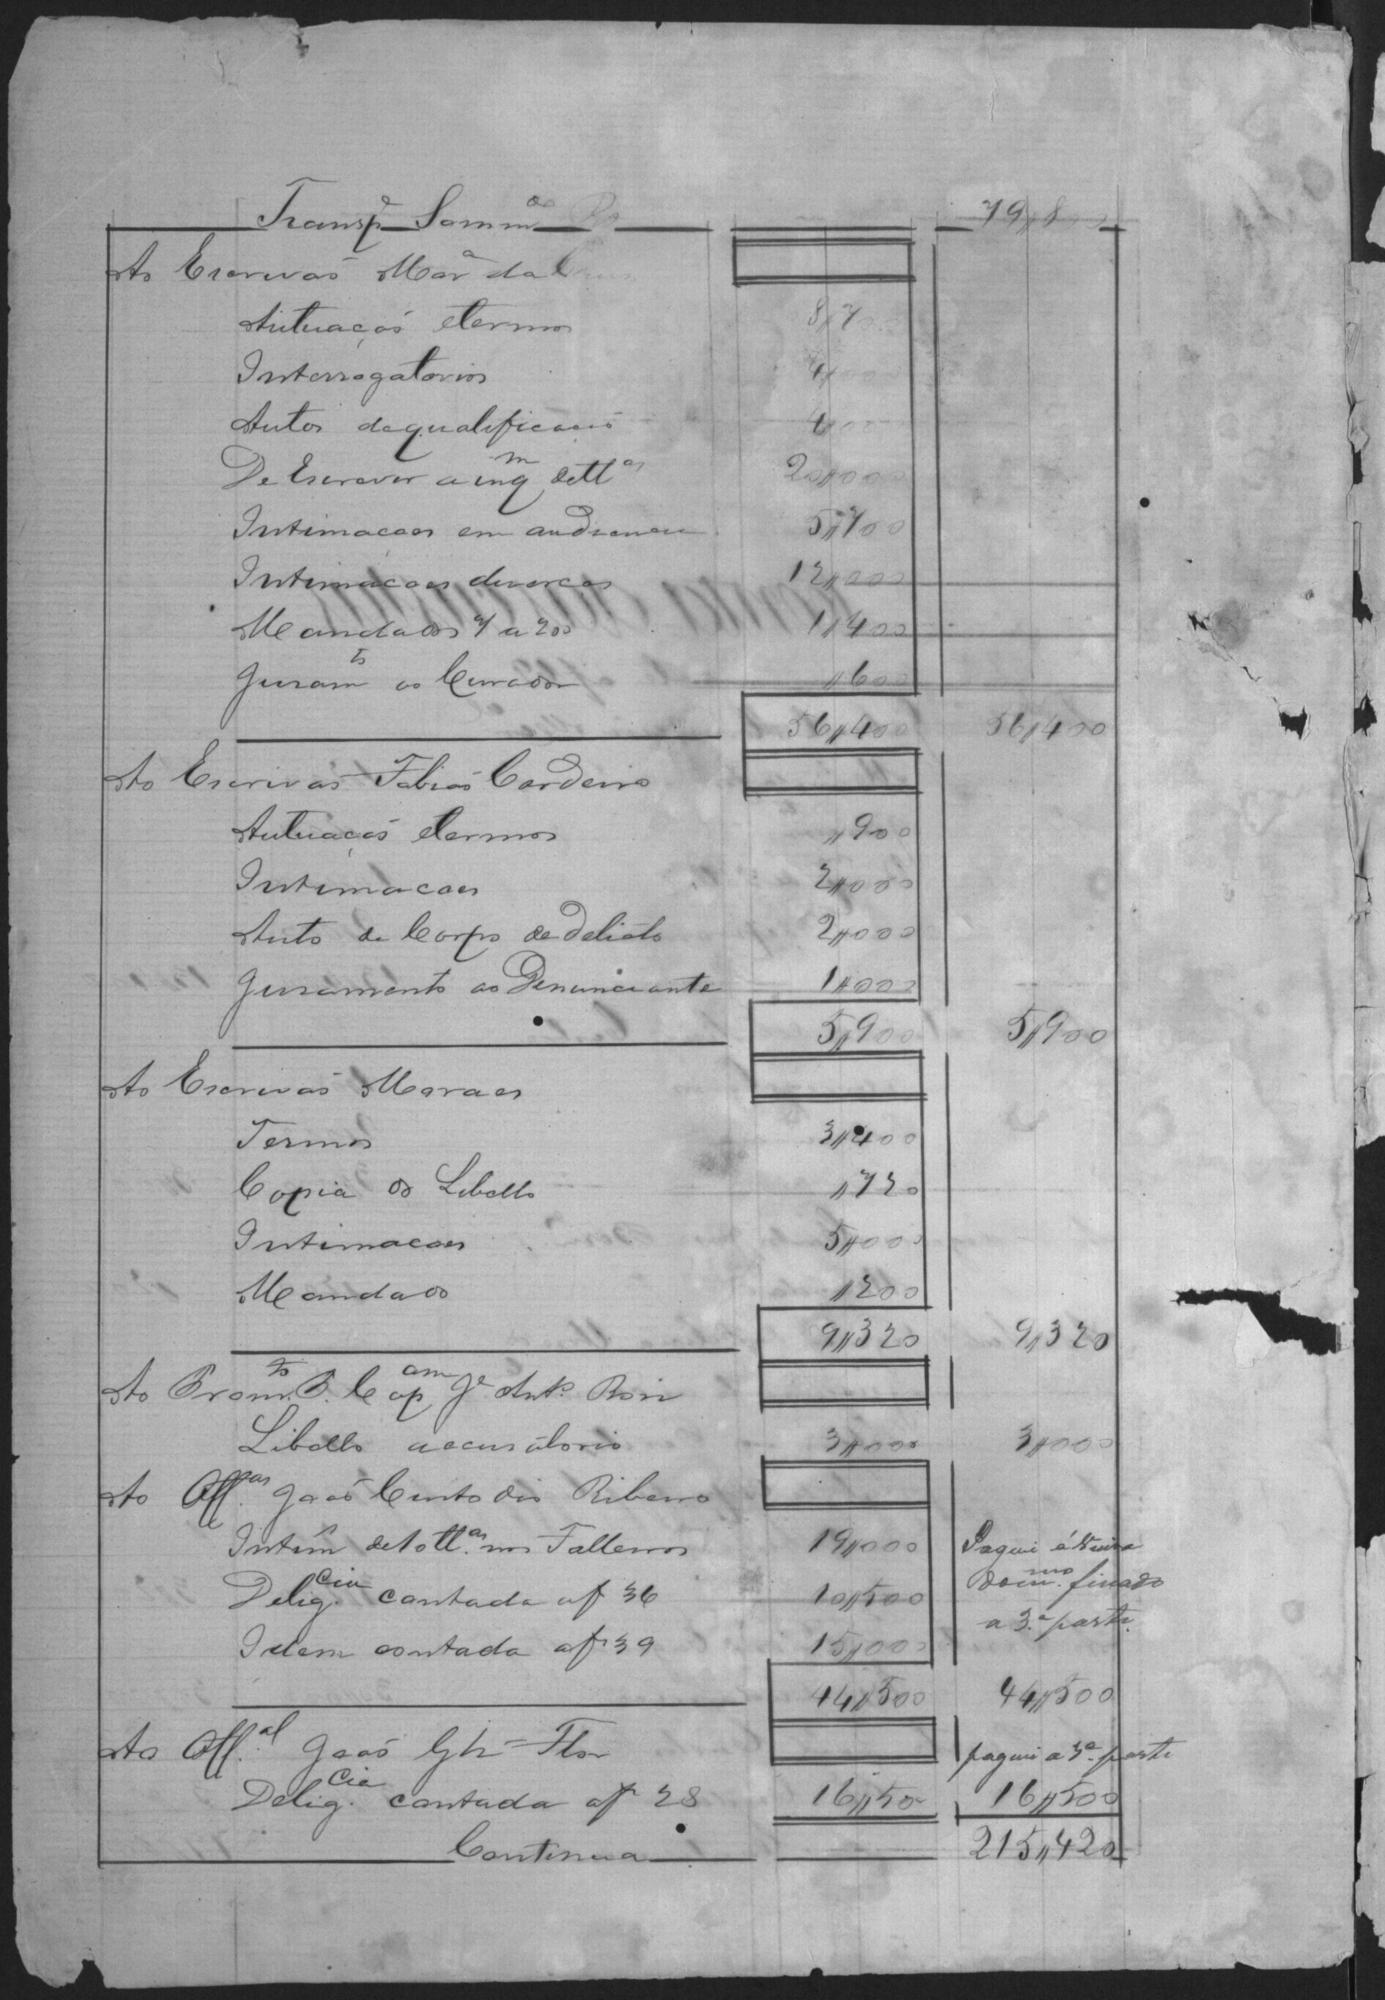 Transp.e Somm.do 79,,8
Ao Escrivaõ Mor.a da
Autuaçaõ e termos 8,,7
Interrogatorios 4,,000
Autos de qualificaçaõ 4,,000
De Escrever a inq.m de tt.as 20,,000
Intimacoes em audiencia 5,,700
Intimacoes divercas 12,,000
Mandados 7 a 200 1,,400
Juram.to ao Curador ,,600
56,,400 56,,400
Ao Escrivaõ Fabiaõ Cordeiro
Autuaçaõ e termos ,,900
Intimacoes 2,,000
Auto de Corpo de Delicto 2,,000
Juramento ao Denunciante 1,,000
5,,900 5,,900
Ao Escrivaõ Moraes
Termos 3,,400
Copia do Libello ,,720
Intimacoes 5,,000
Mandado ,,200
9,,320 9,,320
Ao Prom.to P. Cap.am J.e Ant.o Roiz
Libello accusatorio 3,,000 3,,000
Ao Off.al Joaõ Custodio Ribeiro
Intim de 10 tt.as nos Falleiros 19,,000
Delig.cia contada af 36 10,,500
Idem contada af 39 15,,000
Paguei
dom.mo finado
a 3.a parte.
44,,500 44,,500
Ao Off.al Joaõ Flor
paguei a 3.a parte
Delig.cia contada af 28 16,,50 16,,500
Continua 215,,420